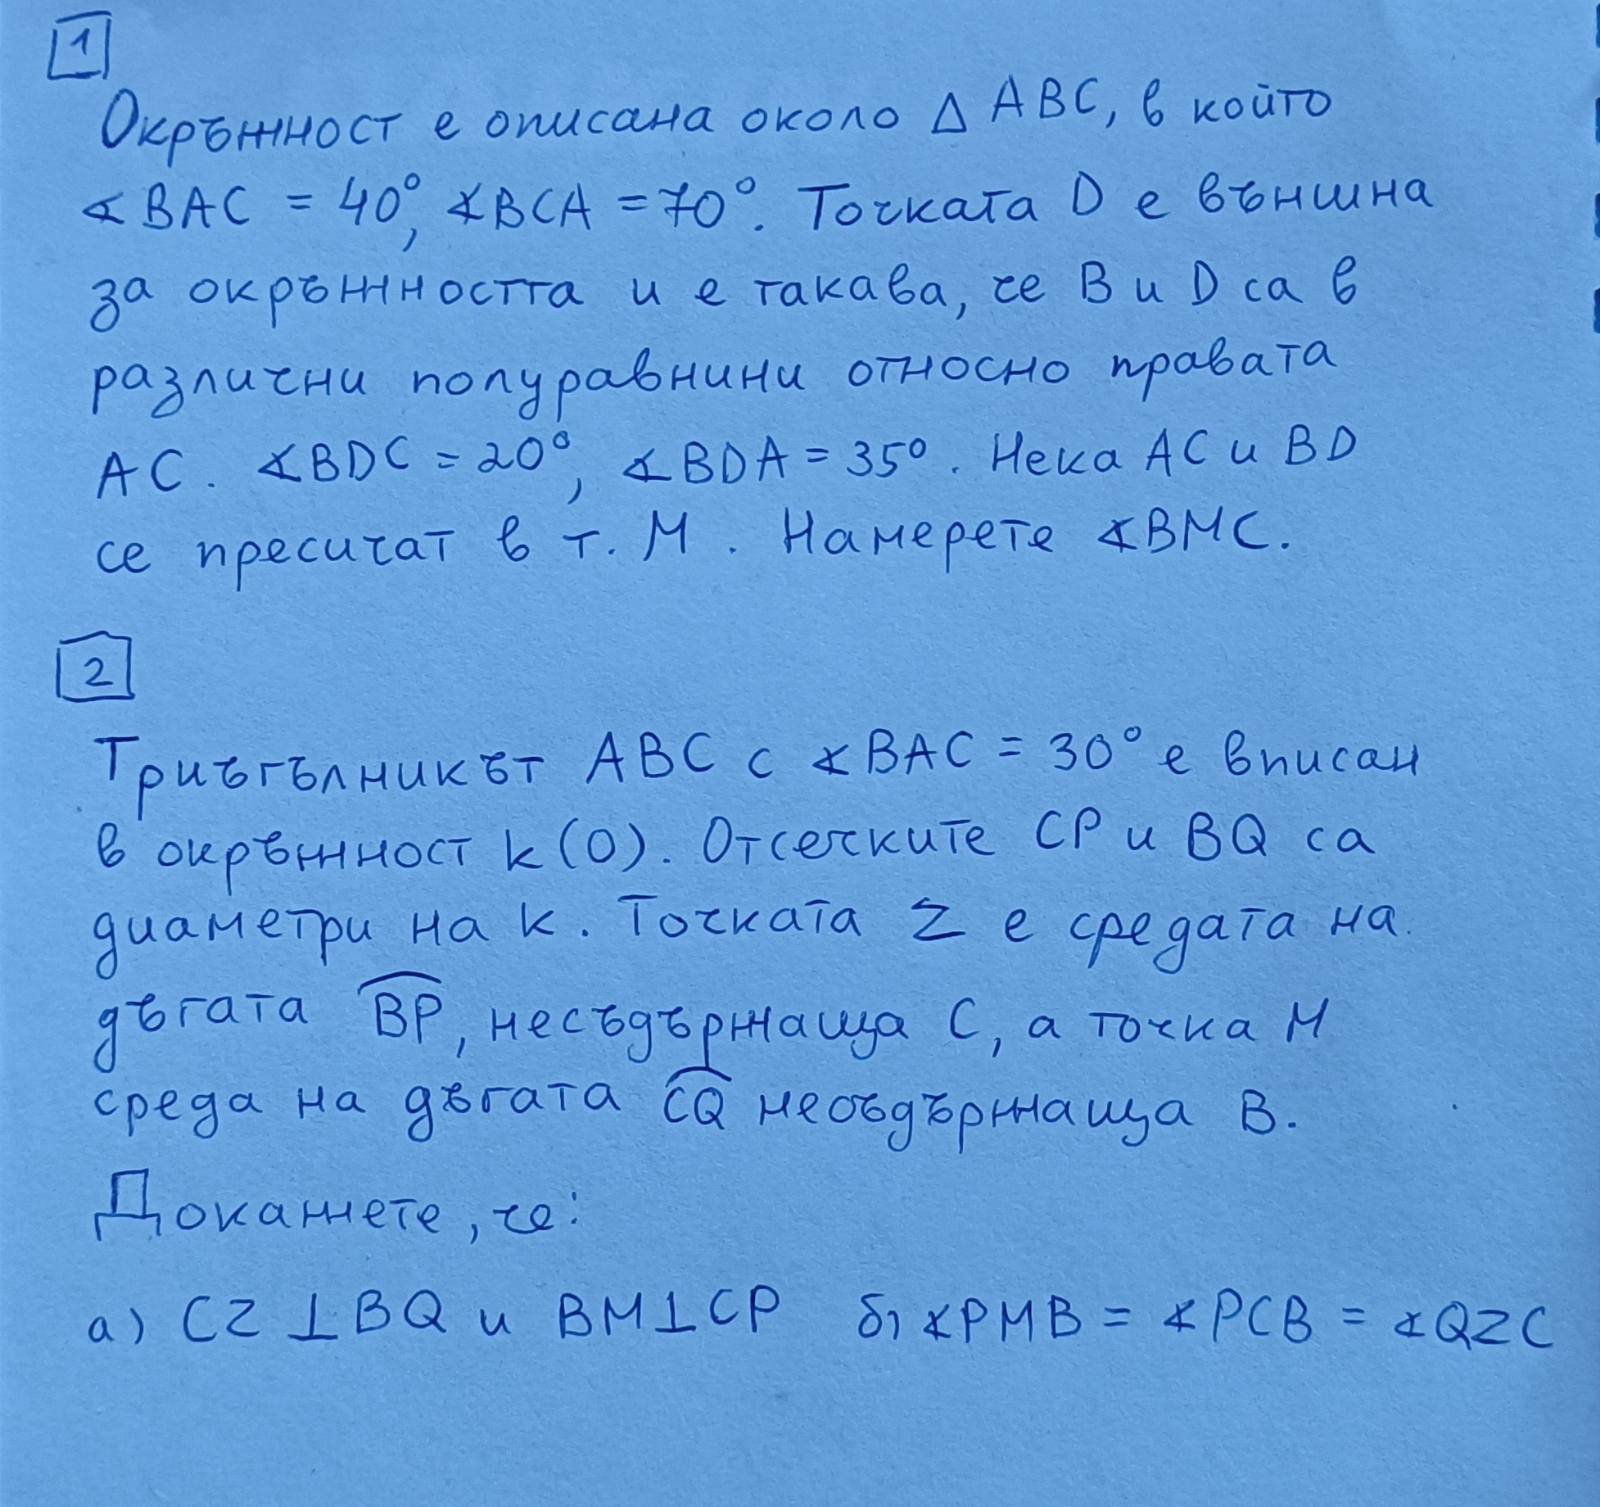 1
Окръжност е описана около △ ABC, в който
∢BAC = 40°, ∢BCA = 70°. Точката D е външна
за окръжността и е такава, че B и D са в
различни полуравнини относно правата
AC. ∢BDC = 20°, ∢BDA = 35°. Нека AC и BD
се пресичат в т. M. Намерете ∢BMC.
2
Триъгълникът ABC с ∢BAC = 30° е вписан
в окръжност k(O). Отсечките CP и BQ са
диаметри на k. Точката Z е средата на
дъгата BP, несъдържаща C, а точка M
среда на дъгата CQ несъдържаща B.
Докажете, че:
а) CZ ⊥ BQ и BM ⊥ CP б) ∢PMB = ∢PCB = ∢QZC